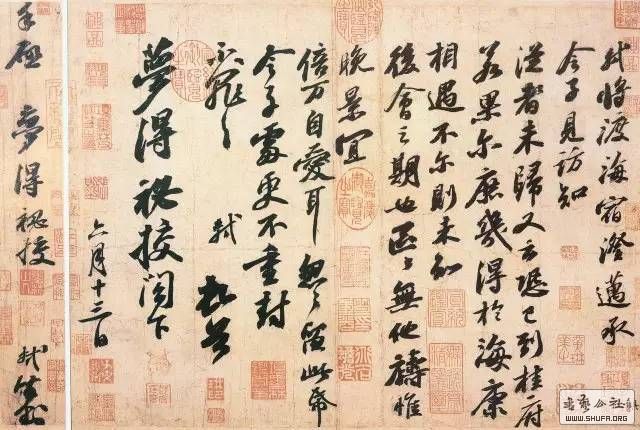 軾將渡海宿澄邁承
令子見訪知
從者未歸又云恐已到桂府
若果尔庶幾得於海康
相遇不尔則未知
後會之期也區々無他禱惟
晚景宜
倍万自愛耳怱々留此帋
令子處更不重封
不罪々
軾 頓首
夢得祕校閣下
六月十三日
手啟 夢得祕校 軾封
书艺公社
WWW.SHUFA.ORG